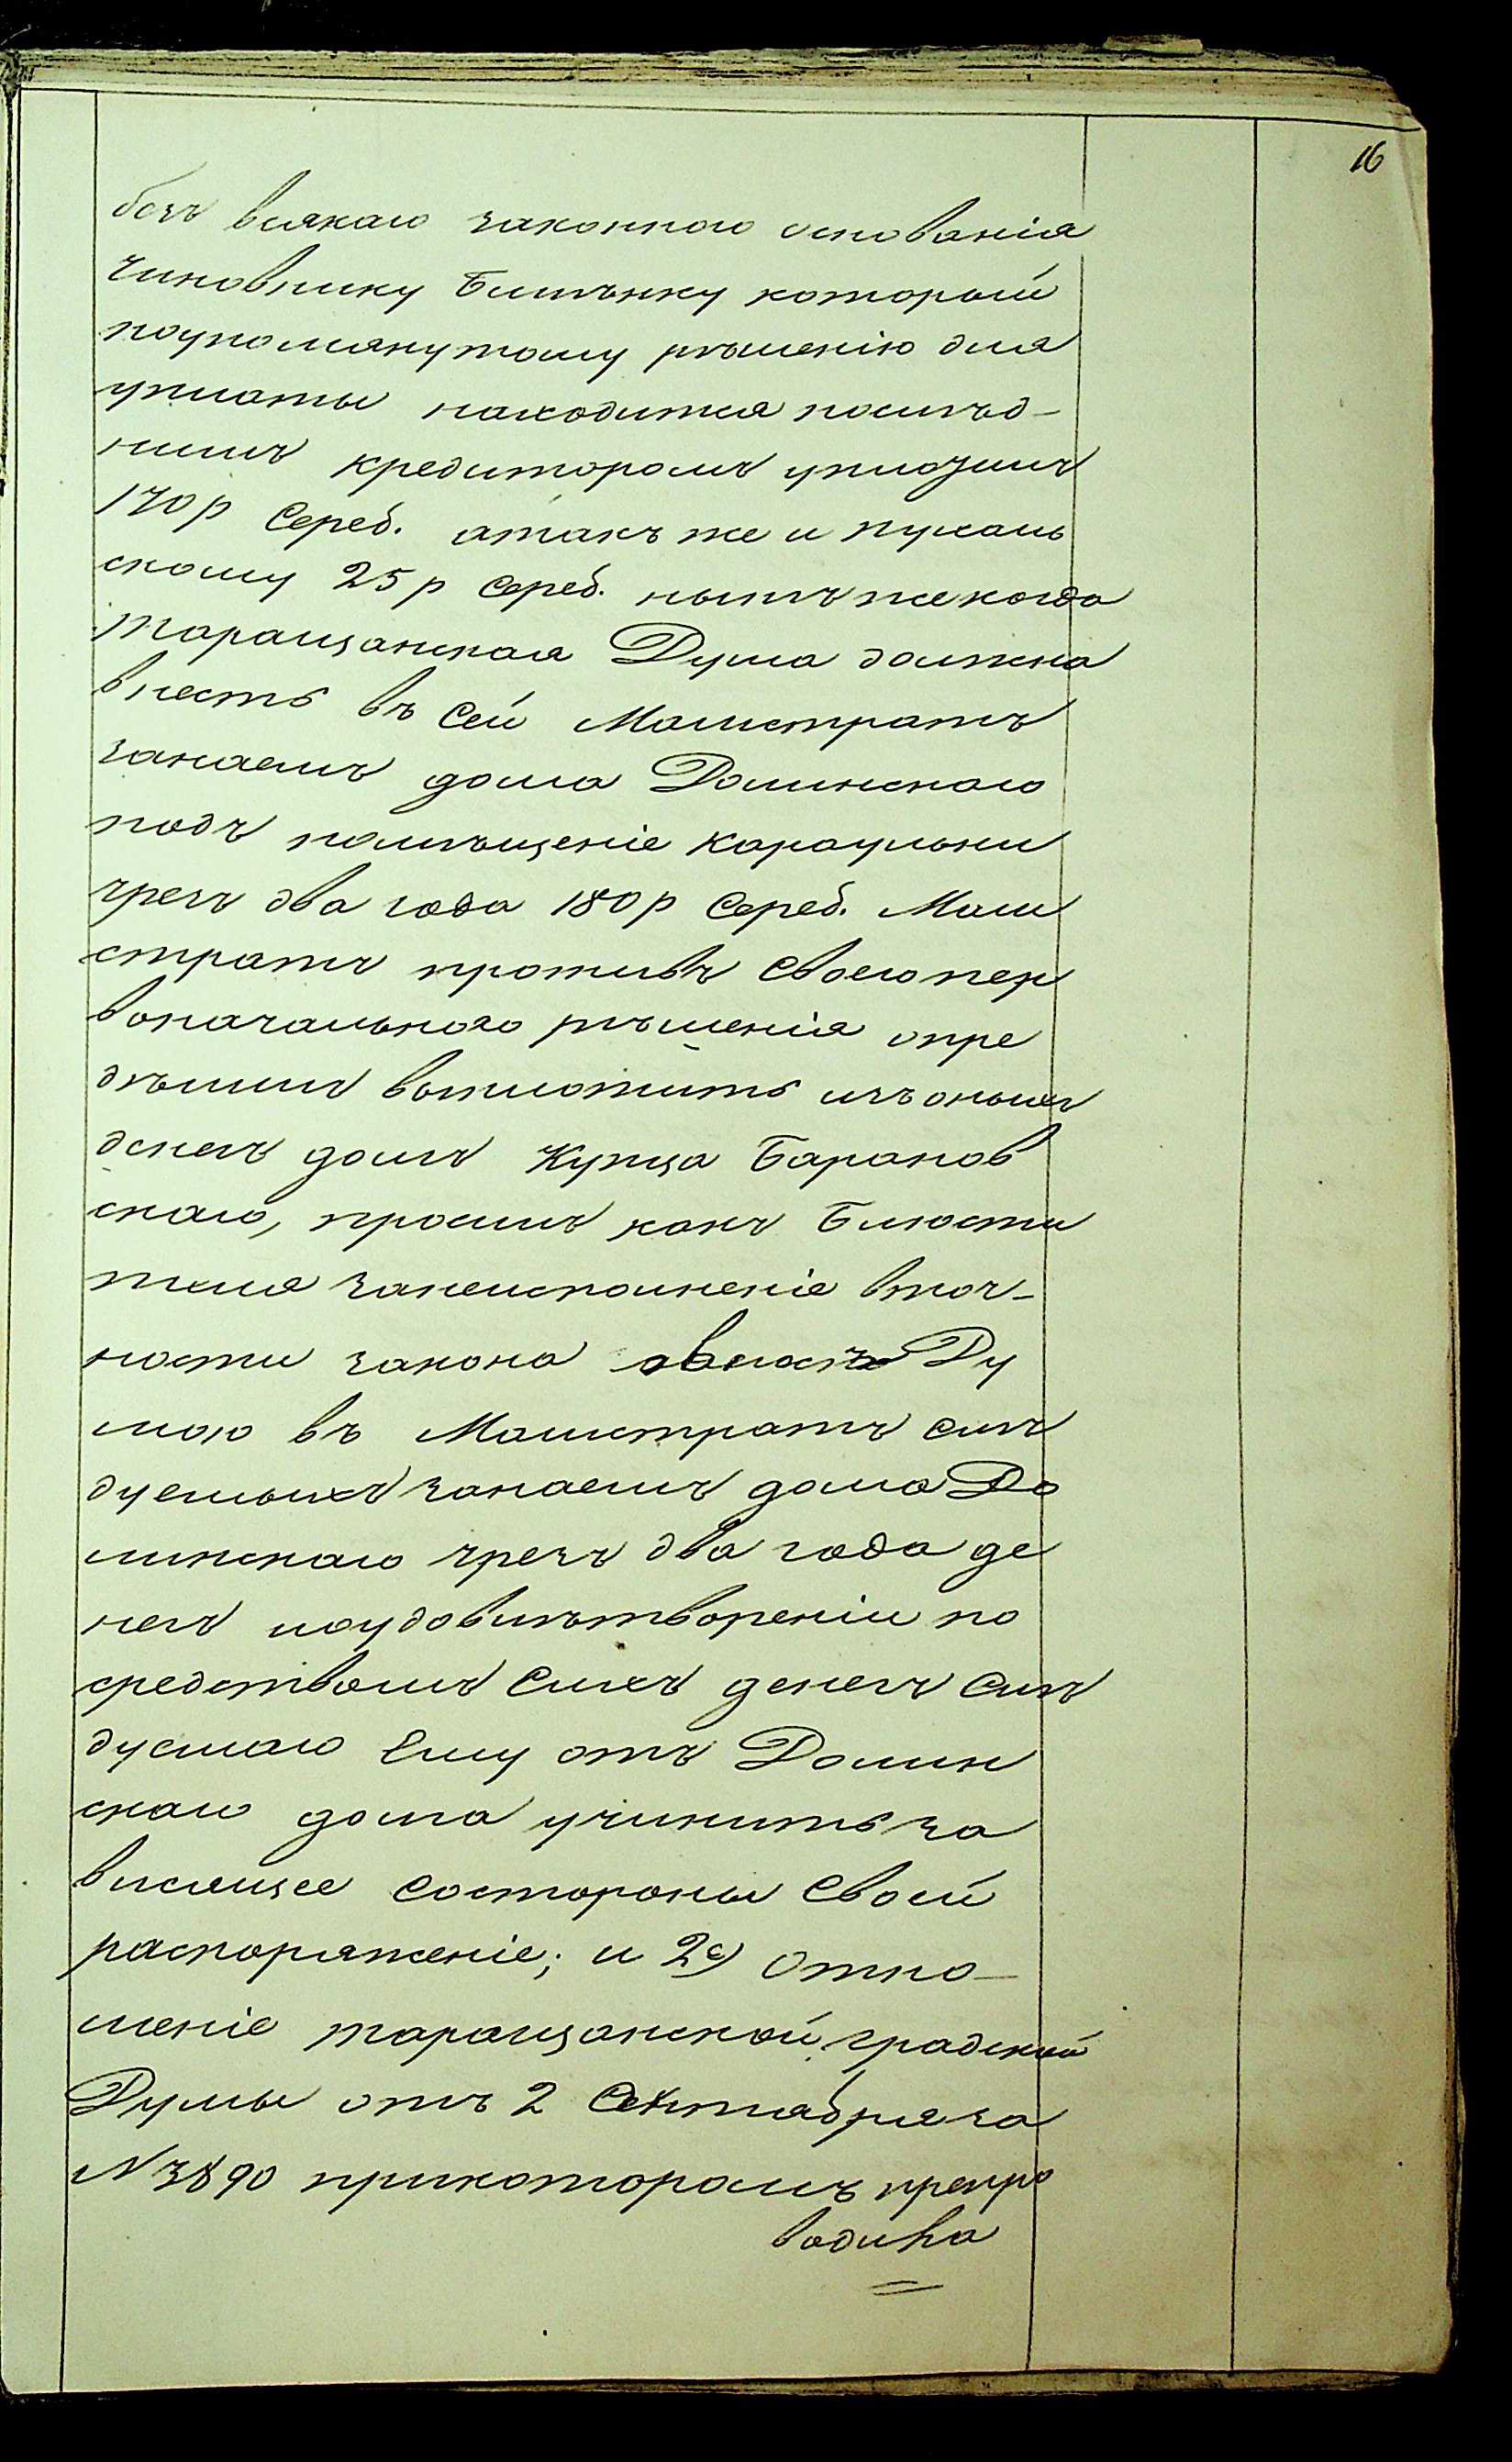 16
безъ всякаго законнаго основанія
чиновнику который
поупомянутому рѣшенію для
уплаты находится послѣд-
нимъ кредиторомъ уплозилъ
170 р Сереб. атакъ же и пухаль
скому 25 р Сереб. нынѣ же когда
таращанская Дума должна
внесть въ Сей Магистратъ
занаемъ дома Долинскаго
подъ помѣщеніе Караульни
чрезъ два года 180 р Сереб. Маги
стратъ противъ Своего пер
воначальнаго рѣшенія опре
дѣлилъ выплотить изъ оныхъ
денегъ долгъ Купца Баранов
скаго, просилъ какъ Блюсти
теля занеисполненіе вточ-
ности закона Ду
мою въ Магистратъ слѣ
дуемыхъ занаемъ дома До
линскаго чрезъ два года де
негъ поудовлѣтвореніи по
средствомъ Сихъ денегъ слѣ
дуемаго Ему отъ Долин
скаго долга учинить за
висящее состороны Своей
распоряженіе; и 2е) Отно-
шеніе таращанской градской
Думы отъ 2 Сентября за
N 3890 прикоторомъ препро
водила